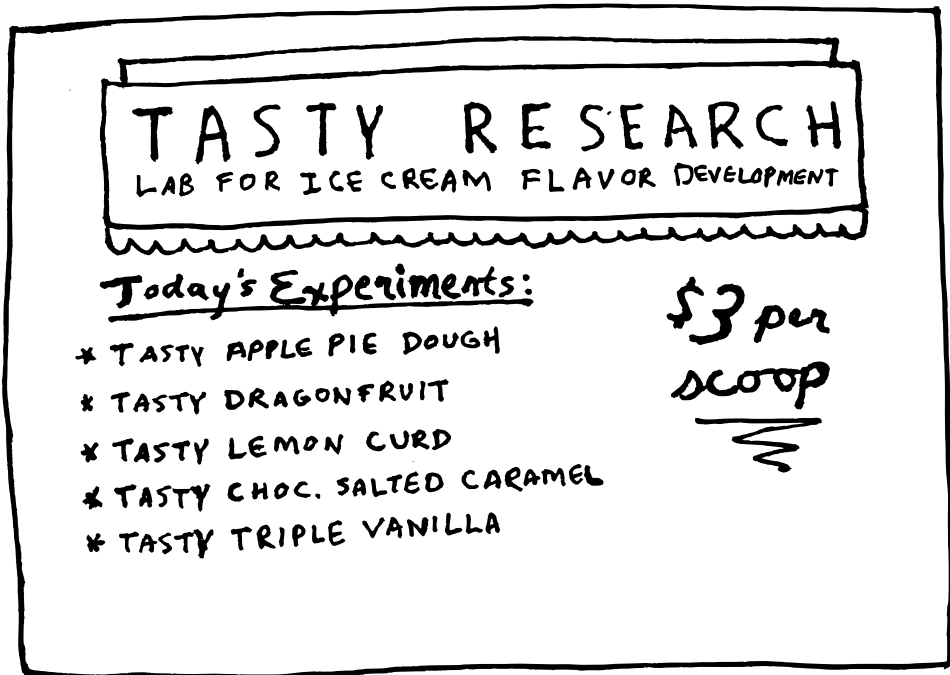 TASTY RESEARCH
LAB FOR ICE CREAM FLAVOR DEVELOPMENT
Today's Experiments:
* TASTY APPLE PIE DOUGH
* TASTY DRAGONFRUIT
* TASTY LEMON CURD
* TASTY CHOC. SALTED CARAMEL
* TASTY TRIPLE VANILLA
$3 per
scoop